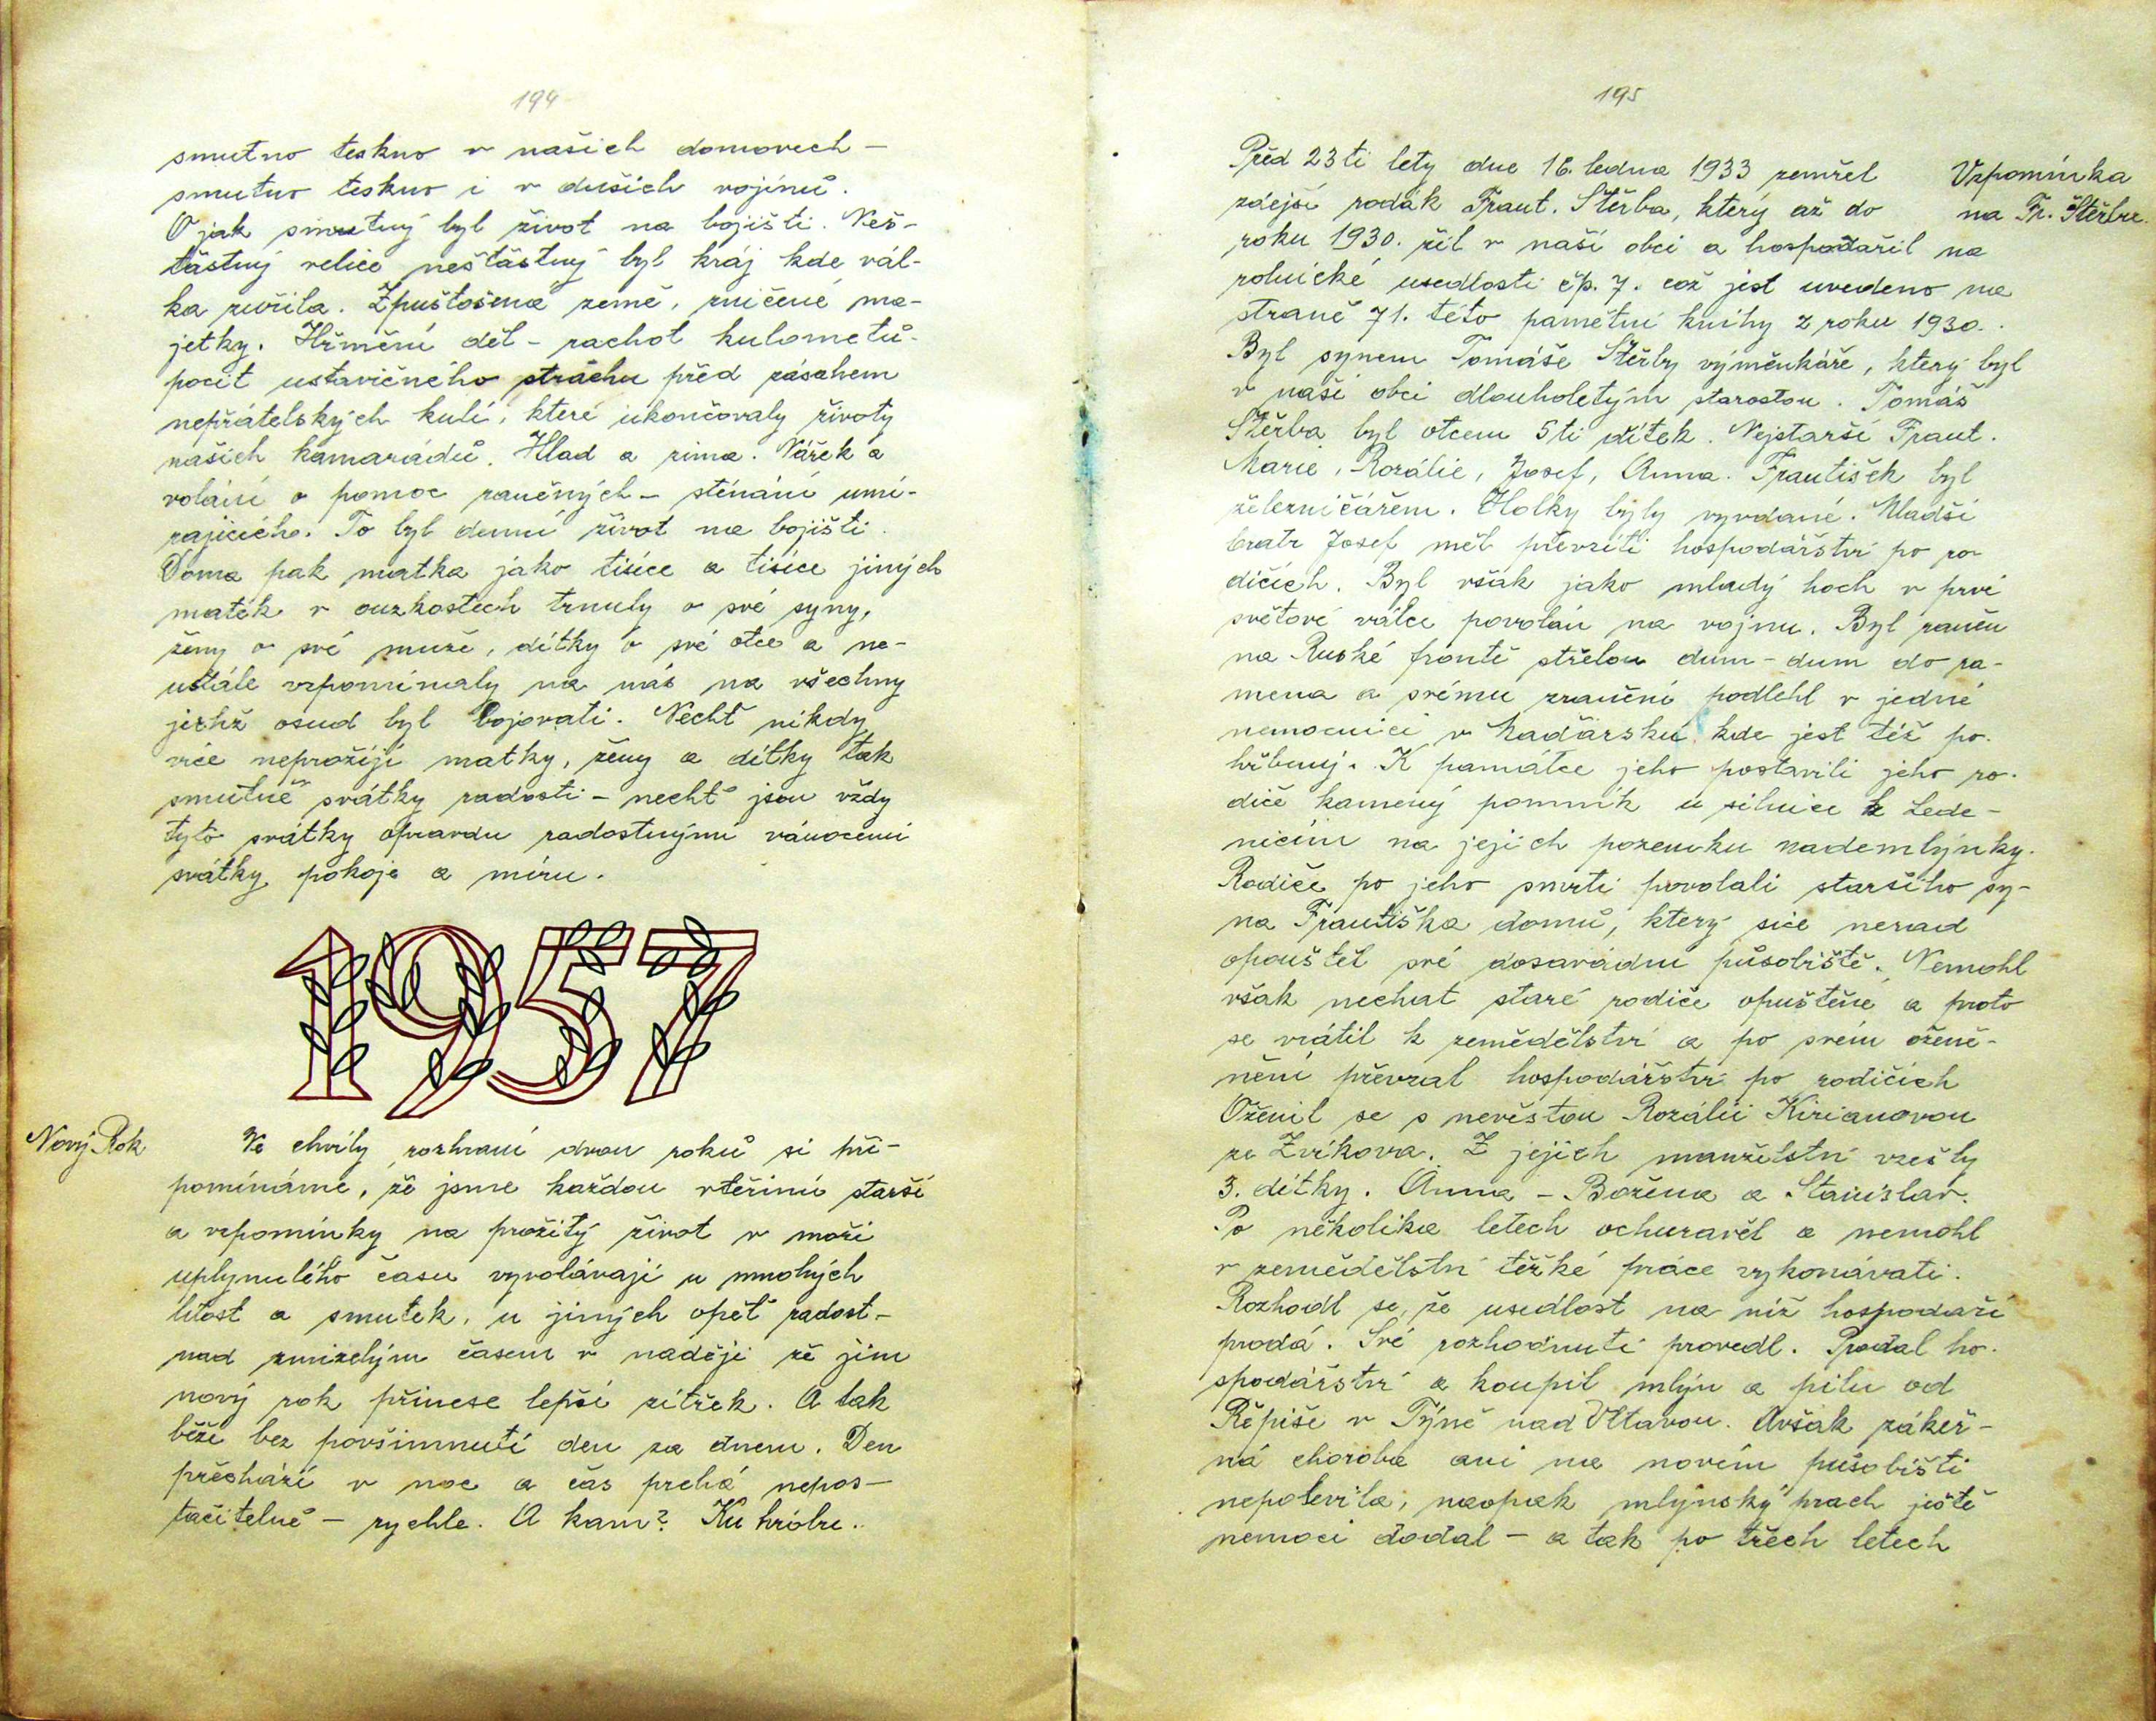 194
smutno teskno v našich domovech –
smutno teskno i v duších vojínů.
O jak smutný byl život na bojišti. Neš-
tastný velice neštastný byl kráj kde vál-
ka zuřila. Zpuštošená země, zničené ma-
jetky. Hřmění děl – rachot kulometů-
pocit ustavičného strachu před zásahem
nepřátelských kulí, které ukončovaly životy
našich kamarádů. Hlad a zima. Nářek a
volání o pomoc raněných – sténání umí-
rajícího. To byl denní život na bojišti.
Doma pak matka jako tisíce a tisíce jiných
matek v ouzkostech trnuly o své syny,
ženy o své muže, dítky o své otce a ne-
ustále vzpomínaly na nás na všechny
jichž osud byl bojovati. Nechť nikdy
více neprožijí matky, ženy a dítky tak
smutné svátky radosti – nechť jsou vždy
tyto svátky opravdu radostnými vánocemi
svátky pokoje a míru.
1957
Nový Rok
Ve chvíly rozhraní dvou roků si při-
pomínáme, že jsme každou vteřinu starší
a vzpomínky na prožitý život v moři
uplynulého času vyvolávají u mnohých
lítost a smutek, u jiných opět radost –
nad zmizelým časem v naději že jim
nový rok přinese lepší zítřek. A tak
běží bez povšimnutí den za dnem. Den
přechází v noc a čas prchá nepos-
tačitelně – rychle. A kam? Ku hrobu..
195
Před 23ti lety dne 16. ledna 1933 zemřel
Vzpomínka
na Fr. Štěrbu.
zdejší rodák Frant. Štěrba, který až do
roku 1930. žil v naší obci a hospodařil na
rolnické usedlosti čp. 7. což jest uvedeno na
straně 71. této pamětní knihy z roku 1930..
Byl synem Tomáše Štěrby výměnkáře, který byl
v naší obci dlouholetým starostou. Tomáš
Štěrba byl otcem 5ti dítek. Nejstarší Frant.
Marie, Rozálie, Josef, Anna. František byl
železničářem. Holky byly vyvdané. Mladší
bratr Josef měl převzíti hospodářství po ro-
dičích. Byl však jako mladý hoch v prvé
světové válce povolán na vojnu. Byl raněn
na Ruské frontě střelou dum-dum do ra-
mena a svému zranění podlehl v jedné
nemocnici v Maďarsku kde jest též po-
hřbený. K památce jeho postavili jeho ro-
diče kamený pomník u silnice k Lede-
nicím na jejich pozemku nademlýnky.
Rodiče po jeho smrti povolali staršího sy-
na Františka domů, který sice nerad
opouštěl své dosavádní působiště. Nemohl
však nechat staré rodiče opuštěné a proto
se vrátil k zemědělství a po svém ožené-
nění převzal hospodářství po rodičích
Oženil se s nevěstou Rozálii Kirianovou
ze Zvíkova. Z jejich manželství vzešly
3. dítky. Anna – Božena a Stanislav.
Po několika letech ochuravěl a nemohl
v zemědělství těžké práce vykonávati.
Rozhodl se, že usedlost na níž hospodaří
prodá. Své rozhodnutí provedl. Prodal ho-
spodářství a koupil mlýn a pilu od
Řepiše v Týně nad Vltavou. Avšak zákeř-
ná choroba ani na novém působišti
nepolevila, naopak mlýnský prach ještě
nemoci dodal – a tak po třech letech